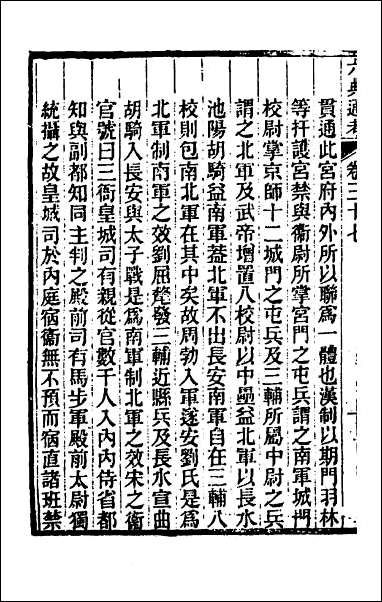 六典通考
卷三十七
貫通此宮府內外所以聯爲一體也漢制以期門羽林
等扞護宮禁與衞尉所掌宮門之屯兵謂之南軍城門
校尉掌京師十二城門之屯兵及三輔所屬中尉之兵
謂之北軍及武帝增置八校尉以中壘益北軍以長水
池陽胡騎益南軍蓋北軍不出長安南軍自在三輔八
校則包南北軍在其中矣故周勃入軍遂安劉氏是爲
北軍制南軍之效劉屈氂發三輔近縣兵及長水宣曲
胡騎入長安與太子戰是爲南軍制北軍之效宋之衞
官號曰三衙皇城司有親從官數千人入內內侍省都
知與副都知同主判之殿前司有馬步軍殿前太尉獨
統攝之故皇城司於內庭宿衞無不預而宿直諸班禁